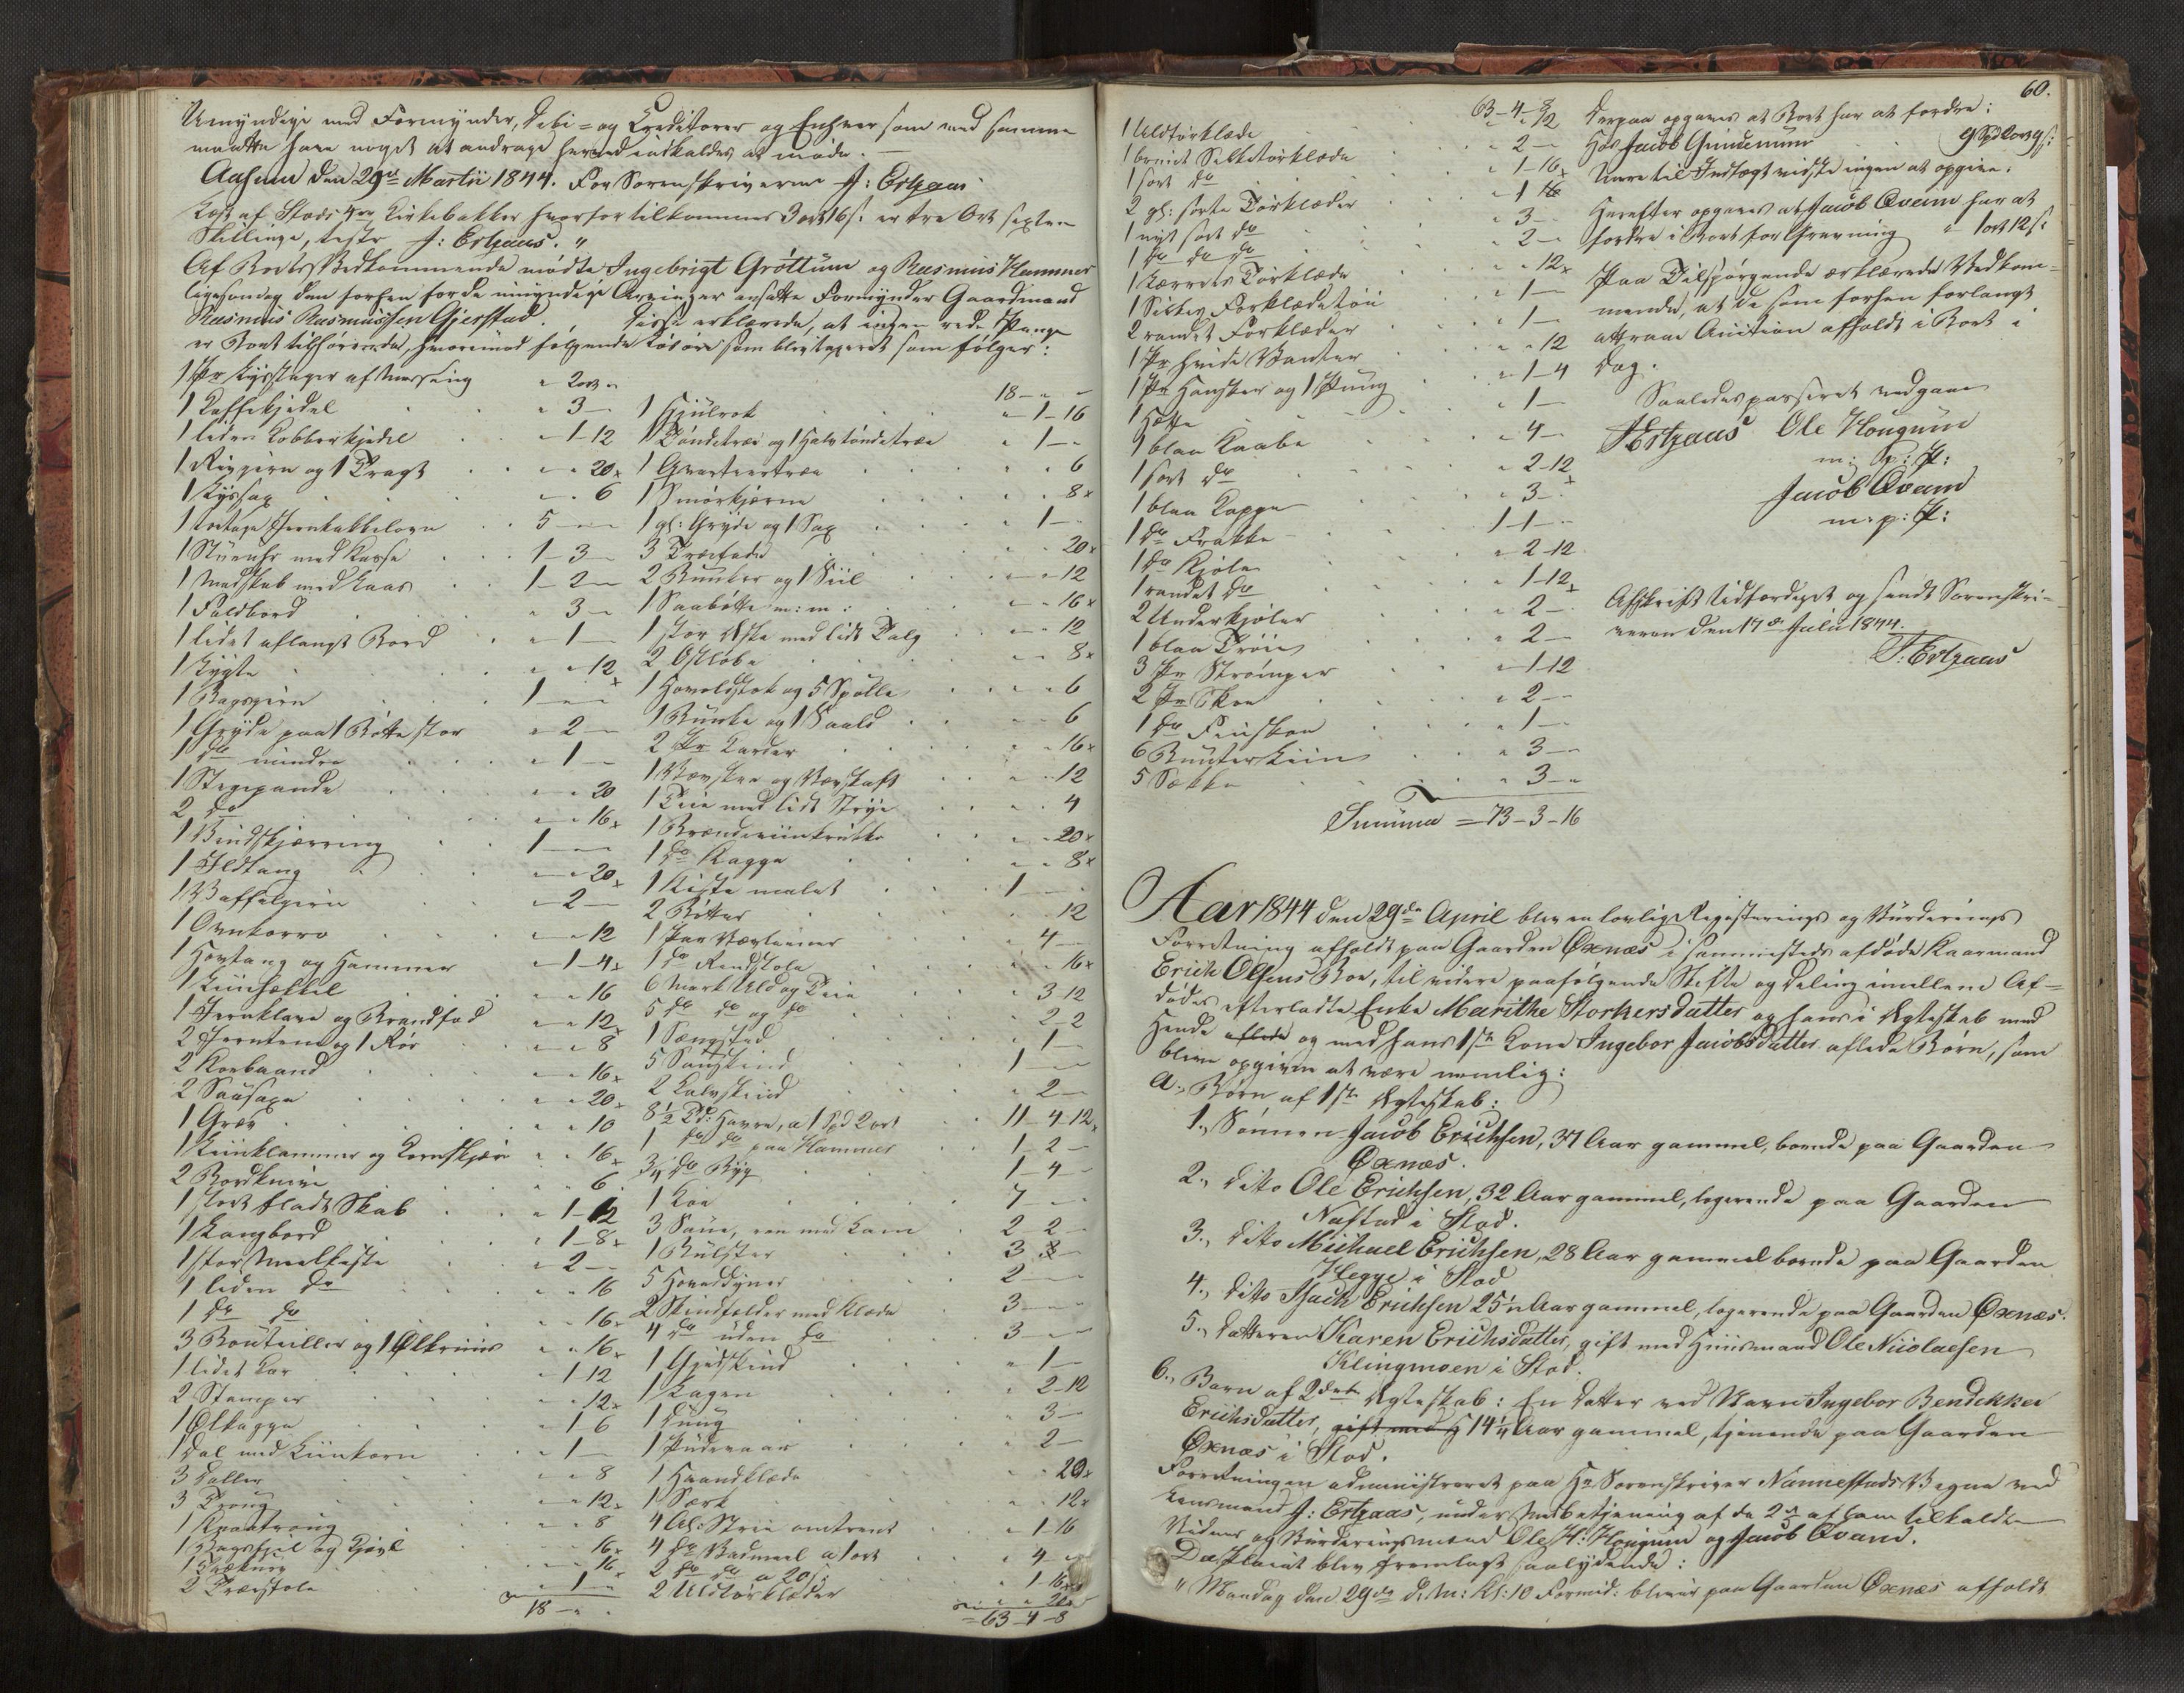 Umyndige med Formynder, Debi- og Creditorer og Enhver som med samme
maatte have noget at andrage herved indkaldes at møde. —
Aasum den 29de Martii 1844. For Sorenskriveren J: Ertzaas
Læst af Stods Kirkebakke hvorfor tilkommer 3 ort 16 s: er tre Ort sexten
Skillinge, testr J: Ertzaas. "
Af Boets Vedkommende mødte Ingebrigt Grøttum og Rasmus Hammer
ligesaa den forhen for de umyndige Arvinger ansatte Formynder Gaardmand
Rasmus Rasmussen Gjerstad. Disse erklærede, at ingen rede Penge
er Boet tilhørende, hvorimod følgende Løsøre som blev taxeret som følger:
1 Pr Lysstager af Messing " 2 ort "
1 Kaffekjedel " 3 —
1 liden Kobberkjedel " 1-12
1 Rivjern og 1 Tragt " " 20
1 Lyssax " " 6
1 Etages Jernkakkelovn 5 — "
1 Stueuhr med Kasse 1-3 —
1 Madskab med Laas 1-2 —
1 Foldbord " 3 —
1 lidet aflangt Bord " 1 —
1 Lygte " " 12
1 Bagsjern 1 — "
1 Gryde paa 1 Bøtte stor " 2 —
1 do mindre " 1 —
1 Stegepande " " 20
2 do " " 16
1 1 —
1 Ildtang " " 20
1 Vaffeljern " 2 —
1 " " 12
1 Hovtang og Hammer " 1-4
1 " " 16
1 Jernklave og Brandjod " " 12
2 og 1 Rør " " 8
2 " " 16
2 Sausaxe " " 20
1 Grev " " 10
1 og " " 16
2 Bordknive " " 6
1 stort fladt Skab " 1-12
1 Langbord " 1-8
1 stor Meelkiste " 2 —
1 liden do " " 16
1 do do " " 16
3 Bouteiller og 1 Ølkruus " " 16
1 lidet Kar " 1-12
2 Stamper " " 12
1 Ølkagge " 1 6
1 Dal med " 1 —
3 Daller " " 8
3 Troug " " 12
1 " " 8
1 og " " 16
1 " " 16
2 Træstole " 1 —
18 — " "
18 — " —
1 Hjulrok " 1-16
1 Tøndetræ og 1 Halvtøndetræ " 1 —
1 Qvarteertræ " " 6
1 Smørkjerne " " 8
1 gl: Gryde og 1 Sax " 1 —
3 Træfade " " 20
2 Bunker og 1 Siil " " 12
1 Saabøtte m: m: " " 16
1 stor Æske med lidt Talg " " 12
2 " " 8
1 og 5 Spølle " " 6
1 Bunke og 1 Saald " " 6
2 Pr Karder " " 16
1 Vævskee og Vævskaft " " 12
1 med lidt Strye " " 4
1 Brændeviin " " 20
1 do Kagge " " 8
1 Kiste malet 1 — "
2 Bøtter " 12
1 Par " 4 —
1 do Rendstole " " 16
6 Mark Uld og " 3-12
5 do do og do " 2-2
1 Sengsted " 1 —
5 1 — "
2 Kalvskind " 2 —
8½ Td: Havre, a 1 Spd 2 ort 11-4-12
1 do do paa Hammer 1-2 —
3/4 do Byg 1-4 —
1 Koe 7 — "
3 Saue, een med Lam 2-2 —
1 Bulster 3 —
5 Hoveddyner 2 —
2 Skindfelder med Klæde 3 — "
4 do uden do 3 — "
1 Gjedskind " 1 —
1 Lagen " 2-12
1 Dung " 3 —
1 Pudevaar " 2 —
1 Haandklæde " " 20
1 Særk " " 12
4 Al: Strie omtrent " 1-16
4 do Vadmel a 1 ort " 4 —
2 do do a 20 s: " 1-16
2 Uldtørklæder " " 20
= 63-4-8
60.
63-4-8
1 Uldtørklæde " " 12
1 bruunt Silketørklæde " 2 —
1 sort do " 1-16
2 gl: sorte Tørklæder " 1 16
1 nyt sort do " 3 —
1 do do do " 2 —
1 Tørklæde " " 12
1 Silke Forklædetøi " 1 —
2 randet Forklæder " 1 —
1 Pr hvide Vanter " " 12
1 Pr Handsker og 1 Pung " 1-4
1 Hætte " 1 —
1 blaa Kaabe " 4 —
1 sort do " 2-12
1 blaa Kappe " 3 —
1 do Frakke 1-1 —
1 do Kjole " 2-12
1 randet do " 1-12
2 Underkjoler " 2 —
1 blaa Trøie " 2 —
3 Pr Strømper " 1-12
2 Pr Skoe " 2 —
1 do Finskoe " 1 —
6 " 3 —
5 Sække " 3 — "
Summa = 73-3-16
Derpaa opgaves at Boet har at fordre:
Hos Jacob 9 Spd 2 ort 9 s:
Mere til Indtægt vidste ingen at opgive.
Herefter opgaves at Jacob Qvam har at
fordre i Boet for Gravning " 1 ort 12 s:
Paa Tilspørgende erklærede Vedkom-
mende, at de som forhen forlangt
attraae Auction afholdt i Boet i
Dag.
Saaledes passeret vedgaaes
J Ertzaas Ole Hougum
m: p: P:
Jacob Qvam
m: p: P:
Afskrift udfærdiget og sendt Sorenskri-
veren den 17de Julii 1844.
J: Ertzaas
Aar 1844 den 29de April blev en lovlig Registerings og Vurderings
Forretning afholdt paa Gaarden Øxnæs i sammesteds afdøde Kaarmand
Erich Olsens Boe, til videre paafølgende Skifte og Deling imellem Af-
dødes efterladte Enke Marithe Storkersdatter og hans i Ægteskab med
Hende aflede og med hans 1ste Kone Ingebor Jacobsdatter aflede Børn, som
bleve opgiven at være nemlig:
a., Børn af 1ste Ægteskab:
1., Sønnen Jacob Erichsen, 37 Aar gammel, boende paa Gaarden
Øxnæs.
2., ditto Ole Erichsen, 32 Aar gammel, logerende paa Gaarden
Nastad i Stod.
3., ditto Michael Erichsen, 28 Aar gammel boende paa Gaarden
Hegge i Stod
4., ditto Isach Erichsen 25½ Aar gammel, logerende paa Gaarden Øxnæs.
5., Datteren Karen Erichsdatter, gift med Huusmand Ole Nicolaesen
Klingmoen i Stod.
6., Barn af 2det Ægteskab: En Datter ved Navn Ingebor Bendekker
Erichsdatter, gift med 14¼ Aar gammel, tjenende paa Gaarden
Øxnæs i Stod.
Forretningen administreret paa Hr Sorenskriver Nannestads Vegne ved
Lensmand J: Ertzaas, under Medbetjening af de 2de af ham tilkaldte
Vidner og Vurderingsmænd Ole H: Hougum og Jacob Qvam.
Placat blev fremlagt saalydende:
" Mandag den 29de d: M: Kl: 10 Formid: bliver paa Gaarden Øxnæs afholdt